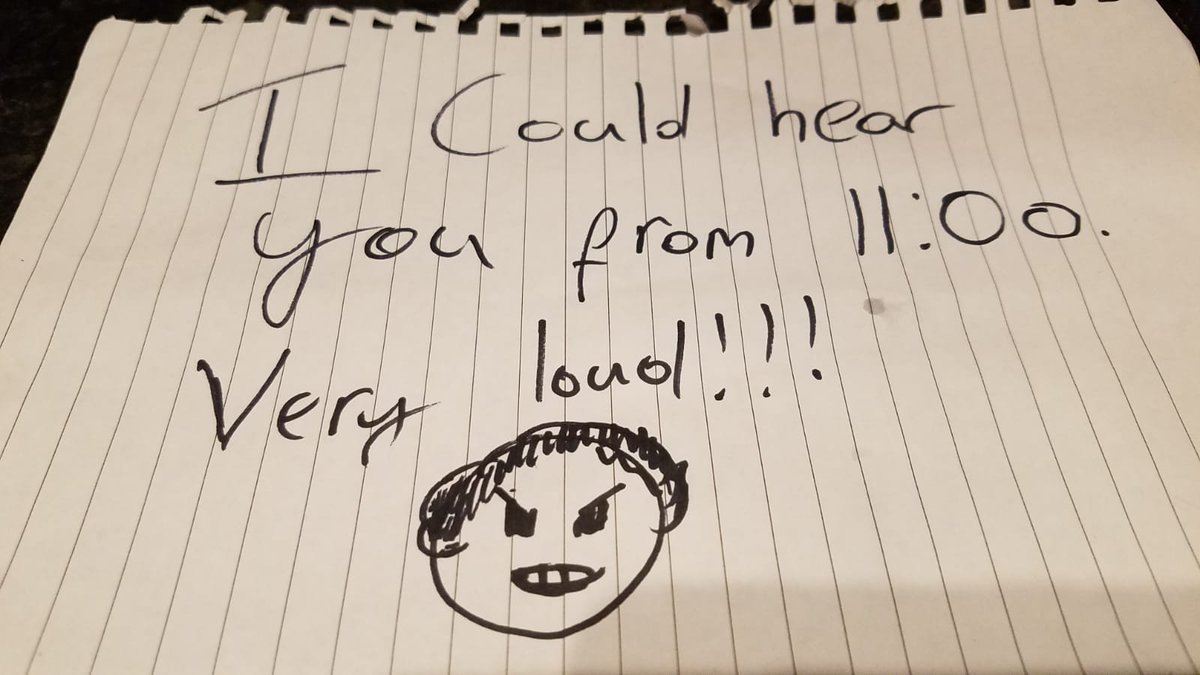 I Could hear
you from 11:00.
Very loud!!!